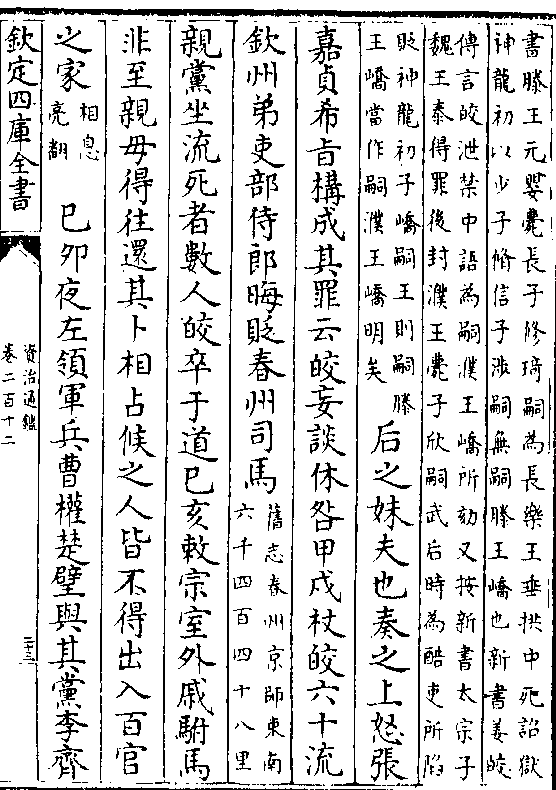 書滕王元嬰薨長子修琦嗣為長樂王垂拱中死詔獄
神龍初以少子脩信子涉嗣無嗣滕王嶠也新書姜皎
傳言皎泄禁中語為嗣濮王嶠所劾又按新書太宗子
魏王泰得罪後封濮王薨子欣嗣武后時為酷吏所陷
貶神龍初子嶠嗣王則嗣滕
王嶠當作嗣濮王嶠明矣
后之妹夫也奏之上怒張
嘉貞希旨構成其罪云皎妄談休咎甲戌杖皎六十流
欽州弟吏部侍郎晦貶春州司馬
舊志春州京師東南
六千四百四十八里
親黨坐流死者數人皎卒于道巳亥敕宗室外戚駙馬
非至親毋得往還其卜相占候之人皆不得出入百官
之家
相息
亮翻
巳夘夜左領軍兵曹權楚璧與其黨李齊
欽定四庫全書
資治通鑑
卷二百十二
二十三